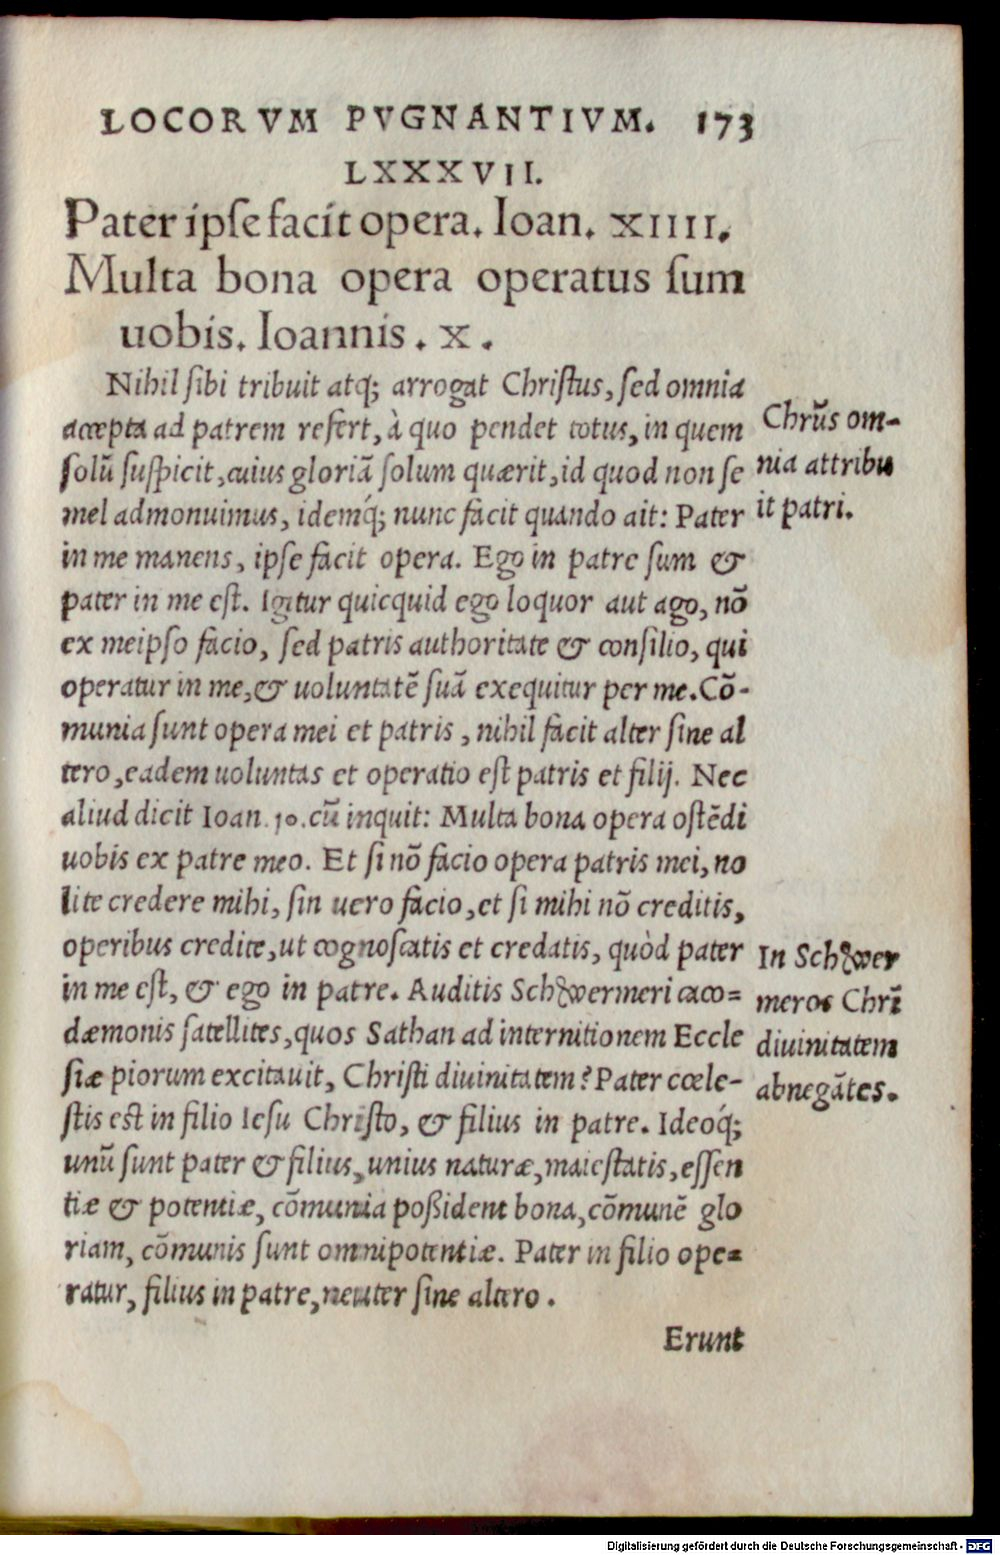 LOCORVM PVGNANTIVM. 173
LXXXVII.
Pater ipſe facit opera. Ioan. XIIII.
Multa bona opera operatus ſum
uobis. Ioannis . X .
Nihil ſibi tribuit atq; arrogat Chriſtus, ſed omnia
accepta ad patrem refert, à quo pendet totus, in quem
ſolũ ſuſpicit, cuius gloriã ſolum quærit, id quod non ſe
mel admonuimus, idemq́; nunc facit quando ait: Pater
in me manens, ipſe facit opera. Ego in patre ſum &
pater in me eſt. Igitur quicquid ego loquor aut ago, nõ
ex meipſo facio, ſed patris authoritate & conſilio, qui
operatur in me, & uoluntatẽ ſuã exequitur per me. Cõ-
munia ſunt opera mei et patris , nihil facit alter ſine al
tero, eadem uoluntas et operatio eſt patris et filij. Nec
aliud dicit Ioan. 10. cũ inquit: Multa bona opera oſtẽdi
uobis ex patre meo. Et ſi nõ facio opera patris mei, no
lite credere mihi, ſin uero facio, et ſi mihi nõ creditis,
operibus credite, ut cognoſcatis et credatis, quòd pater
in me eſt, & ego in patre. Auditis Schwermeri caco=
dæmonis ſatellites, quos Sathan ad internitionem Eccle
ſiæ piorum excitauit, Chriſti diuinitatem? Pater cœle-
ſtis eſt in filio Ieſu Chriſto, & filius in patre. Ideoq́;
unũ ſunt pater & filius, unius naturæ, maieſtatis, eſſen
tiæ & potentiæ, cõmunia poßident bona, cõmunẽ glo
riam, cõmunis ſunt omnipotentiæ. Pater in filio ope=
ratur, filius in patre, neuter ſine altero .
Erunt
Chrũs om-
nia attribu
it patri.
In Schwer
meros Chrĩ
diuinitatem
abnegãtes.
Digitalisierung gefördert durch die Deutsche Forschungsgemeinschaft - DFG